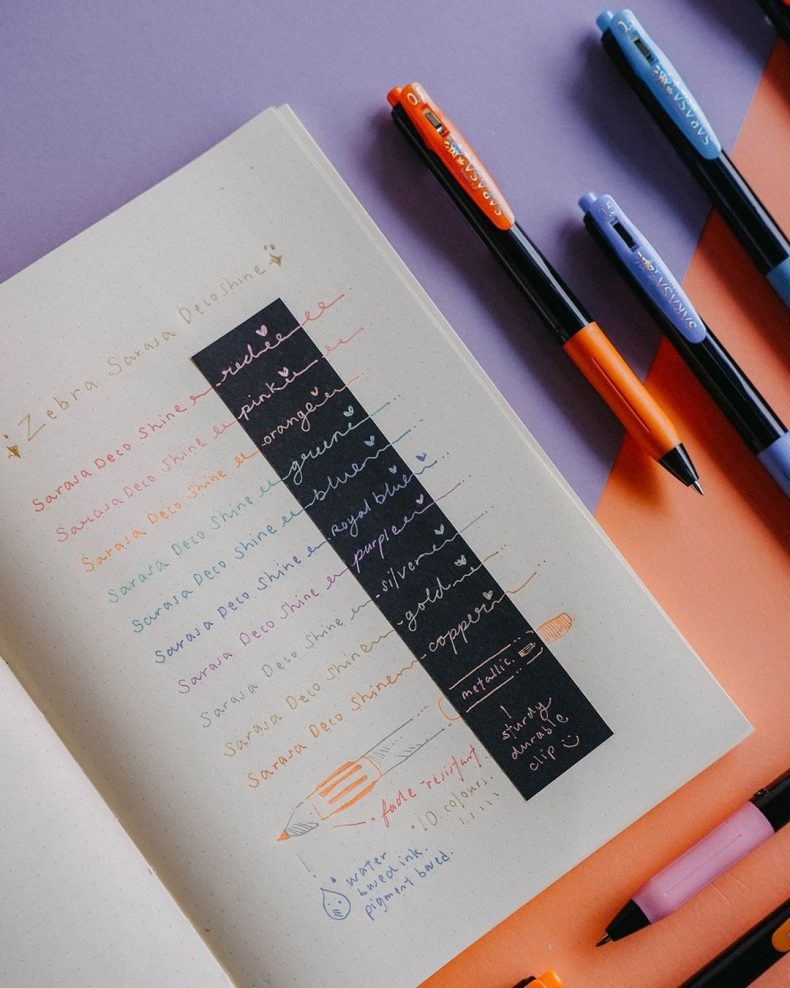 Zebra Sarasa Deco Shine
Sarasa Deco Shine red
Sarasa Deco Shine pink
Sarasa Deco Shine orange
Sarasa Deco Shine green
Sarasa Deco Shine blue
Sarasa Deco Shine Royal blue
Sarasa Deco Shine purple
Sarasa Deco Shine silver
Sarasa Deco Shine gold
Sarasa Deco Shine copper
metallic.
sturdy
durable
clip
fade-resistant.
10 colours.
water
based ink.
pigment based.
SARASA
SARASA
SARASA